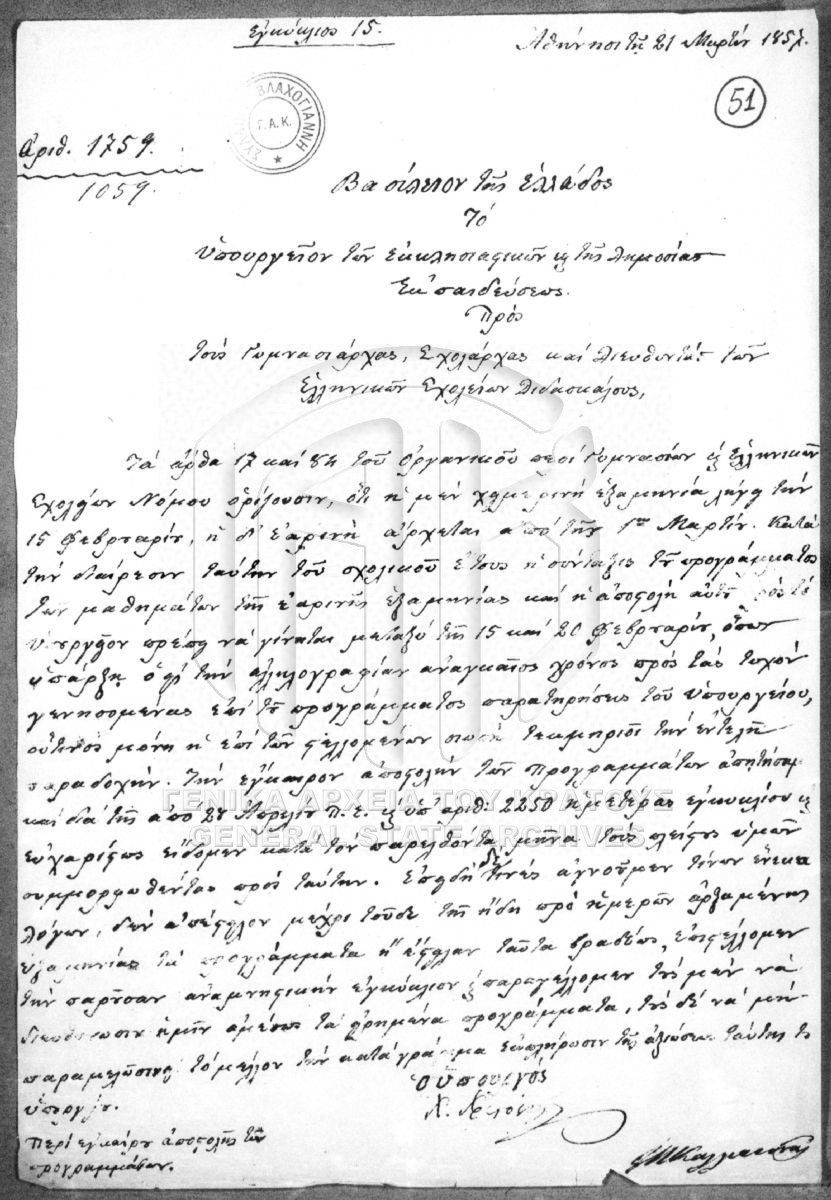 Εγκύκλιος 15.
Αθήνησι τῇ 21 Μαρτίου 1857.
51
ΒΛΑΧΟΓΙΑΝΝΗ
Γ.Α.Κ.
Αριθ. 1759.
1059.
Βασίλειον τῆς Ἑλλάδος
Τό
Ὑπουργεῖον τῶν Ἐκκλησιαστικῶν ϗ τῆς Δημοσίας
Ἐκπαιδεύσεως.
Πρός
τούς Γυμνασιάρχας, Σχολάρχας καί Διευθυντάς τῶν
Ἑλληνικῶν Σχολείων Διδασκάλους,
Τά ἄρθα 17 καί 84 τοῦ ὀργανικοῦ περί Γυμνασίων ϗ Ἑλληνικῶν
Σχολείων Νόμου ὁρίζουσιν, ὅτι ἡ μέν χειμερινή ἑξαμηνία λήγει τήν
15 Φεβρουαρίου, ἡ δ' ἐαρινή ἄρχεται ἀπό τῆς 1ης Μαρτίου. Κατά
τήν διαίρεσιν ταύτην τοῦ σχολικοῦ ἔτους ἡ σύνταξις τοῦ προγράμματος
τῶν μαθημάτων τῆς ἐαρινῆς ἑξαμηνίας καί ἡ ἀποστολή αὐτοῦ πρός τό
Ὑπουργεῖον πρέπει νά γίνεται μεταξύ τῆς 15 καί 20 Φεβρουαρίου, ὅπως
ὑπάρξῃ ὁ διά τήν ἀλληλογραφίαν ἀναγκαῖος χρόνος πρός τάς τυχόν
γενησομένας ἐπί τοῦ προγράμματος παρατηρήσεις τοῦ Ὑπουργείου,
οὗτινος μόνη ἡ ἐπί τῶν στελλομένων σιωπή τεκμηριοῖ τήν ἐντελῆ
παραδοχήν. Τήν ἔγκαιρον ἀποστολήν τῶν προγραμμάτων ἀπῃτήσαμεν
καί διά τῆς ἀπό 28 Ἀπριλίου Π.Ε. ϗ ὑπ' ἀριθ. 2250 ἡμετέρας ἐγκυκλίου ϗ
εὐχαρίστως εἴδομεν κατά τόν παρελθόντα μῆνα τούς πλείστους ὑμῶν
συμμορφωθέντας πρός ταύτην. Ἐπειδή δέ τινές ἀγνοοῦμεν τίνων ἕνεκα
λόγων, δέν ἀπέστειλον μέχρι τοῦδε τῆς ἤδη πρό ἡμερῶν ἀρξαμένης
ἑξαμηνίας τά προγράμματα ἤ ἔστειλαν ταῦτα βραδέως, ἐπιστέλλομεν
τήν παροῦσαν ἀναμνηστικήν ἐγκύκλιον ϗ παραγγέλλομεν τούς μέν νά
διευθύνωσιν ἡμῖν ἀμέσως τά εἰρημένα προγράμματα, τούς δέ νά μή
παραμελῶσιν εἰς τό μέλλον τήν κατά γράμμα ἐκπλήρωσιν τῆς ἀξιώσεως ταύτης τοῦ
Ὑπουργείου.
Ὁ Ὑπουργός
Περί ἐγκαίρου ἀποστολῆς τῶν
προγραμμάτων.
ΓΕΝΙΚΑ ΑΡΧΕΙΑ ΤΟΥ ΚΡΑΤΟΥΣ
GENERAL STATE ARCHIVES